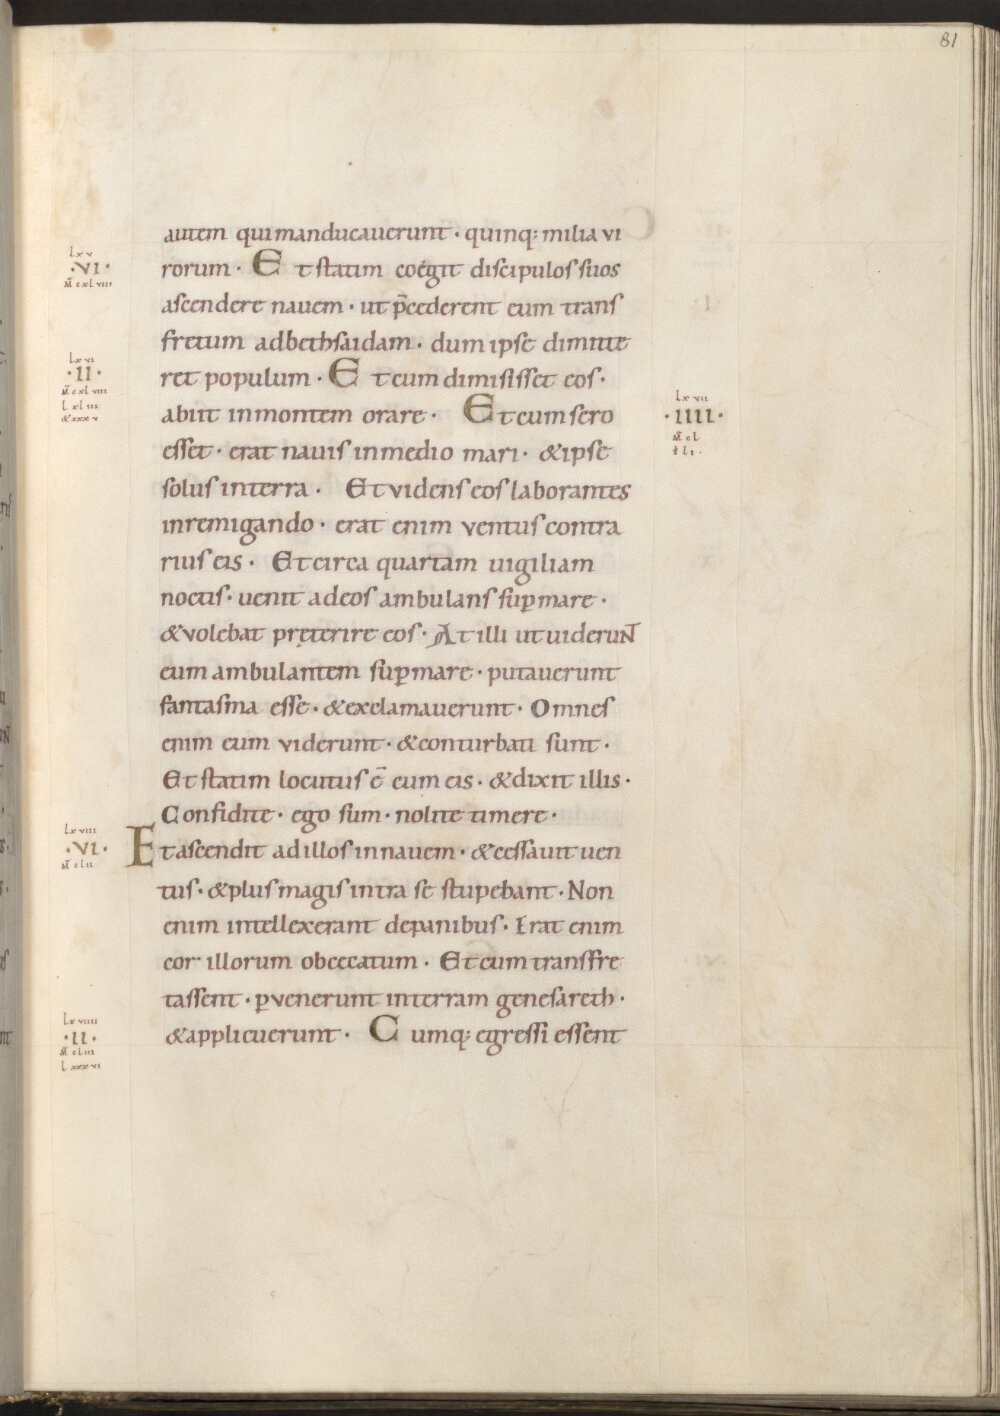 81
autem qui manducauerunt · quinq; milia vi
rorum · Et statim coégit discipulos suos
ascendere nauem · ut p̄cederent eum trans
fretum ad bethsaidam · dum ipse dimitte
ret populum · Et cum dimisisset eos ·
abiit in montem orare · Et cum sero
esset · erat nauis in medio mari · & ipse
solus in terra · Et videns eos laborantes
in remigando · erat enim ventus contra
rius eis · Et circa quartam uigiliam
noctis · uenit ad eos ambulans sup mare ·
& volebat pręterire eos · At illi ut uiderunt
eum ambulantem sup mare · putauerunt
fantasma esse · & exclamauerunt · Omnes
enim eum viderunt · & conturbati sunt ·
Et statim locutus ē cum eis · & dixit illis ·
Confidite · ego sum · nolite timere ·
Et ascendit ad illos in nauem · & cessauit uen
tus · & plus magis intra se stupebant · Non
enim intellexerant de panibus · Erat enim
cor illorum obcecatum · Et cum transfre
tassent · pvenerunt in terram genesareth ·
& applicuerunt · Cumq; egressi essent
lxv
· VI ·
M̄ cxlviii
lxvi
· II ·
M̄ cxlviii
l xliii
& xxxv
lxvii
· IIII ·
M̄ cl
lxviii
· VI ·
M̄ clii
lxviiii
· II ·
M̄ cliii
l xxxvi